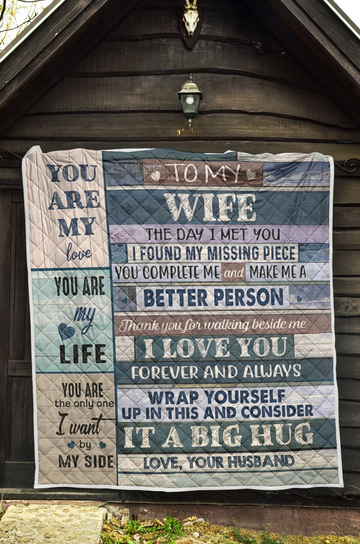 YOU ARE MY love
YOU ARE my LIFE
YOU ARE the only one I want by MY SIDE
TO MY
WIFE
THE DAY I MET YOU
I FOUND MY MISSING PIECE
YOU COMPLETE ME and MAKE ME A
BETTER PERSON
Thank you for walking beside me
I LOVE YOU
FOREVER AND ALWAYS
WRAP YOURSELF
UP IN THIS AND CONSIDER
IT A BIG HUG
LOVE, YOUR HUSBAND